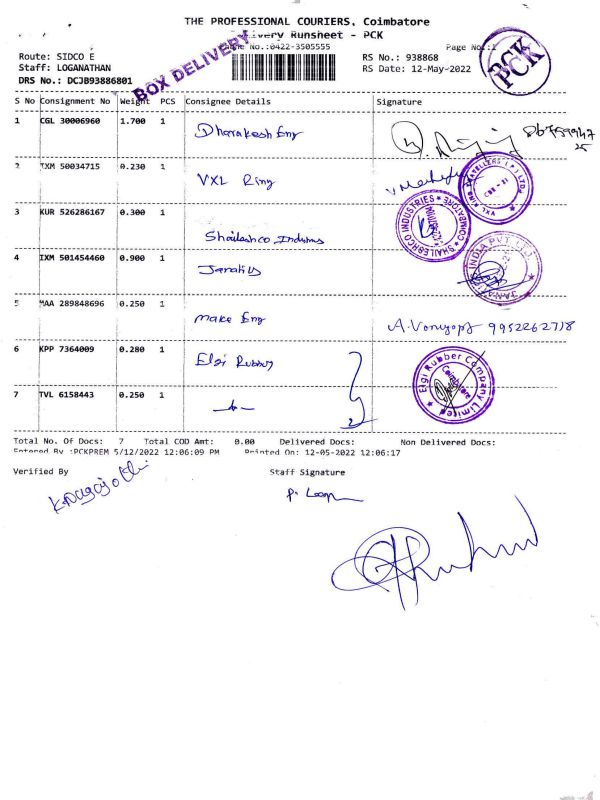 THE PROFESSIONAL COURIERS, Coimbatore
Delivery Runsheet - PCK
Phone No.:0422-3505555
Page No.:1
Route: SIDCO E
RS No.: 938868
Staff: LOGANATHAN
RS Date: 12-May-2022
DRS No.: DCJB93886801
BOX DELIVERY
PCK
S No Consignment No Weight PCS Consignee Details Signature
1 CGL 30006960 1.700 1 Dharakesh Eng
2 IXM 50034715 0.230 1 VXL Ring
3 KUR 526286167 0.300 1 Shaileshco Industries
SHAILESHCO INDUSTRIES COIMBATORE
4 IXM 501454460 0.900 1
INDIA PVT. LTD.
5 MAA 289848696 0.250 1 make Eng 9952262718
6 KPP 7364009 0.280 1 Elgi Rubber
Elgi Rubber Company Limited
Coimbatore
7 TVL 6158443 0.250 1
Total No. Of Docs: 7 Total COD Amt: 0.00 Delivered Docs: Non Delivered Docs:
Entered By :PCKPREM 5/12/2022 12:06:09 PM Printed On: 12-05-2022 12:06:17
Verified By Staff Signature